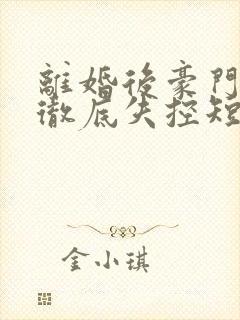 離婚後豪門
徹底失控短
金小琪